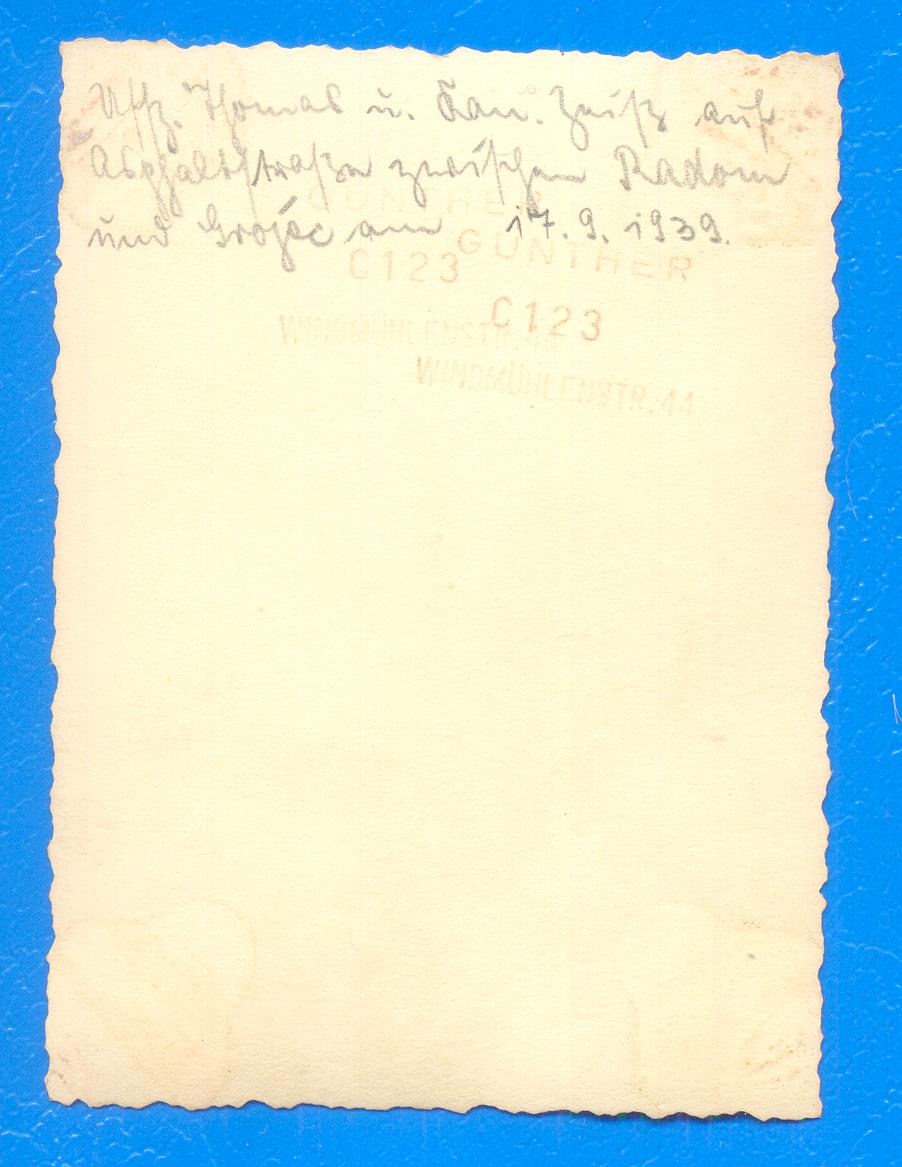 Uffz. Thomas u. Kan. Zeiß auf
Asphaltstraße zwischen Radom
und Grojec am 17.9.1939.
GÜNTHER
GÜNTHER
C123
C123
WINDMÜHLENSTR. 44
WINDMÜHLENSTR. 44